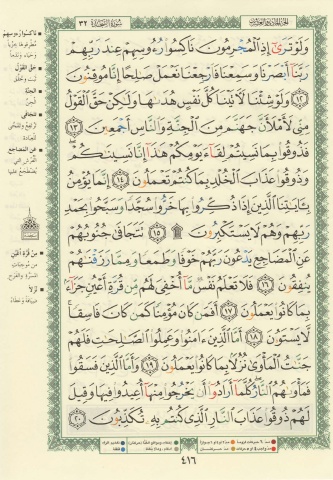 سورة السجدة ٣٢
وَلَوْ تَرَىٰٓ إِذِ ٱلْمُجْرِمُونَ نَاكِسُوا۟ رُءُوسِهِمْ عِندَ رَبِّهِمْ
رَبَّنَآ أَبْصَرْنَا وَسَمِعْنَا فَٱرْجِعْنَا نَعْمَلْ صَٰلِحًا إِنَّا مُوقِنُونَ
١٢ وَلَوْ شِئْنَا لَءَاتَيْنَا كُلَّ نَفْسٍ هُدَىٰهَا وَلَٰكِنْ حَقَّ ٱلْقَوْلُ
مِنِّى لَأَمْلَأَنَّ جَهَنَّمَ مِنَ ٱلْجِنَّةِ وَٱلنَّاسِ أَجْمَعِينَ ١٣
فَذُوقُوا۟ بِمَا نَسِيتُمْ لِقَآءَ يَوْمِكُمْ هَٰذَآ إِنَّا نَسِينَٰكُمْ
وَذُوقُوا۟ عَذَابَ ٱلْخُلْدِ بِمَا كُنتُمْ تَعْمَلُونَ ١٤ إِنَّمَا يُؤْمِنُ
بِـَٔايَٰتِنَا ٱلَّذِينَ إِذَا ذُكِّرُوا۟ بِهَا خَرُّوا۟ سُجَّدًا وَسَبَّحُوا۟ بِحَمْدِ
رَبِّهِمْ وَهُمْ لَا يَسْتَكْبِرُونَ ۩ ١٥ تَتَجَافَىٰ جُنُوبُهُمْ
عَنِ ٱلْمَضَاجِعِ يَدْعُونَ رَبَّهُمْ خَوْفًا وَطَمَعًا وَمِمَّا رَزَقْنَٰهُمْ
يُنفِقُونَ ١٦ فَلَا تَعْلَمُ نَفْسٌ مَّآ أُخْفِىَ لَهُم مِّن قُرَّةِ أَعْيُنٍ جَزَآءًۢ
بِمَا كَانُوا۟ يَعْمَلُونَ ١٧ أَفَمَن كَانَ مُؤْمِنًا كَمَن كَانَ فَاسِقًا ۚ
لَّا يَسْتَوُۥنَ ١٨ أَمَّا ٱلَّذِينَ ءَامَنُوا۟ وَعَمِلُوا۟ ٱلصَّٰلِحَٰتِ فَلَهُمْ
جَنَّٰتُ ٱلْمَأْوَىٰ نُزُلًۢا بِمَا كَانُوا۟ يَعْمَلُونَ ١٩ وَأَمَّا ٱلَّذِينَ فَسَقُوا۟
فَمَأْوَىٰهُمُ ٱلنَّارُ ۖ كُلَّمَآ أَرَادُوٓا۟ أَن يَخْرُجُوا۟ مِنْهَآ أُعِيدُوا۟ فِيهَا وَقِيلَ
لَهُمْ ذُوقُوا۟ عَذَابَ ٱلنَّارِ ٱلَّذِى كُنتُم بِهِۦ تُكَذِّبُونَ ٢٠
ناكسوا رءوسهم
حق القول
الجنة
تتجافى
عن المضاجع
من قرة أعين
نزلا
٤١٦